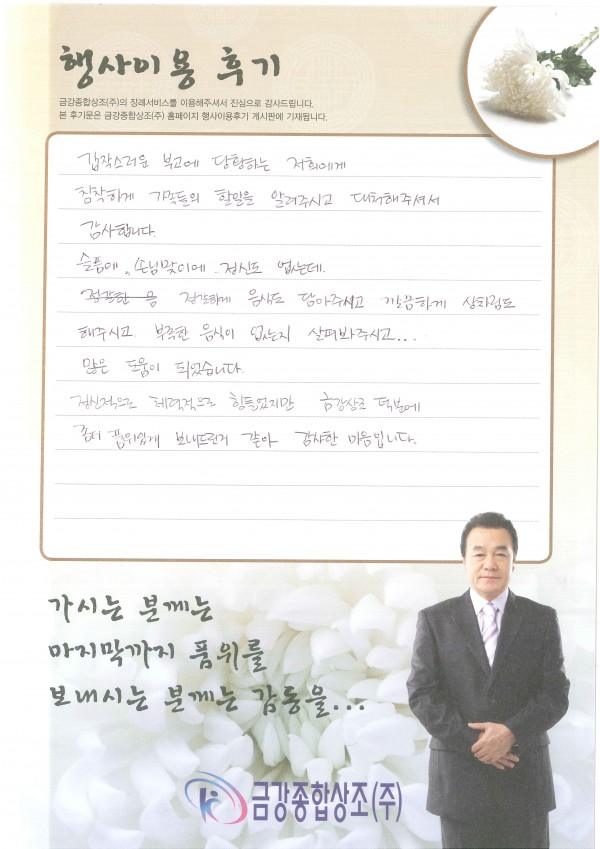 행사이용 후기
금강종합상조(주)의 장례서비스를 이용해주셔서 진심으로 감사드립니다.
본 후기문은 금강종합상조(주) 홈페이지 행사이용후기 게시판에 기재됩니다.
갑작스러운 부고에 당황하는 저희에게
침착하게 가족들의 할일을 알려주시고 대처해주셔서
감사합니다.
슬픔에, 손님맞이에 정신도 없는데.
정갈한 음 정갈하게 음식도 담아주시고 깔끔하게 상차림도
해주시고 부족한 음식이 없는지 살펴봐주시고...
많은 도움이 되었습니다.
정신적으로 체력적으로 힘들었지만 금강상조 덕분에
좀더 품위있게 보내드린거 같아 감사한 마음입니다.
가시는 분께는
마지막까지 품위를
보내시는 분께는 감동을...
금강종합상조(주)